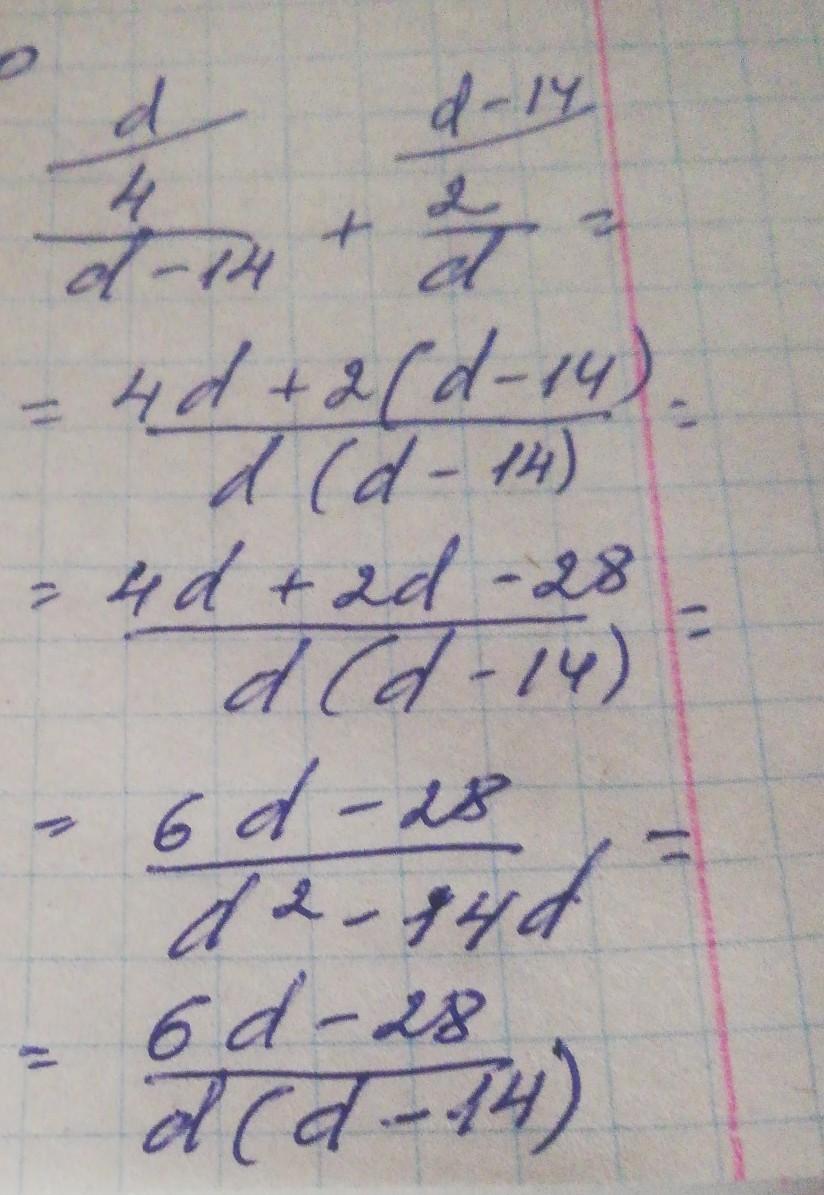 d d-14
4/(d-14) + 2/d =
= (4d + 2(d-14))/(d(d-14)) =
= (4d + 2d - 28)/(d(d-14)) =
= (6d - 28)/(d² - 14d) =
= (6d - 28)/(d(d-14))